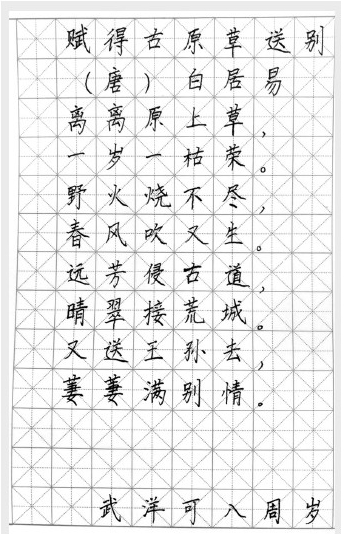 赋得古原草送别
（唐）白居易
离离原上草，
一岁一枯荣。
野火烧不尽，
春风吹又生。
远芳侵古道，
晴翠接荒城。
又送王孙去，
萋萋满别情。
武洋可八周岁